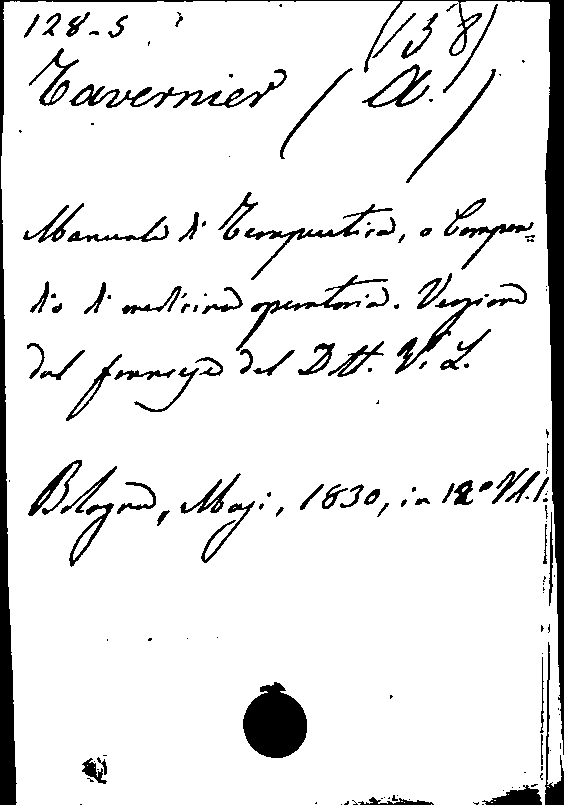 128-5 (138)
Tavernier (A.)
Manuale di Terapeutica, o Compen=
dio di medicina operatoria. Versione
dal francese del Dtt. V. L.
Bologna, Masi, 1830, in 12° Vl. 1.